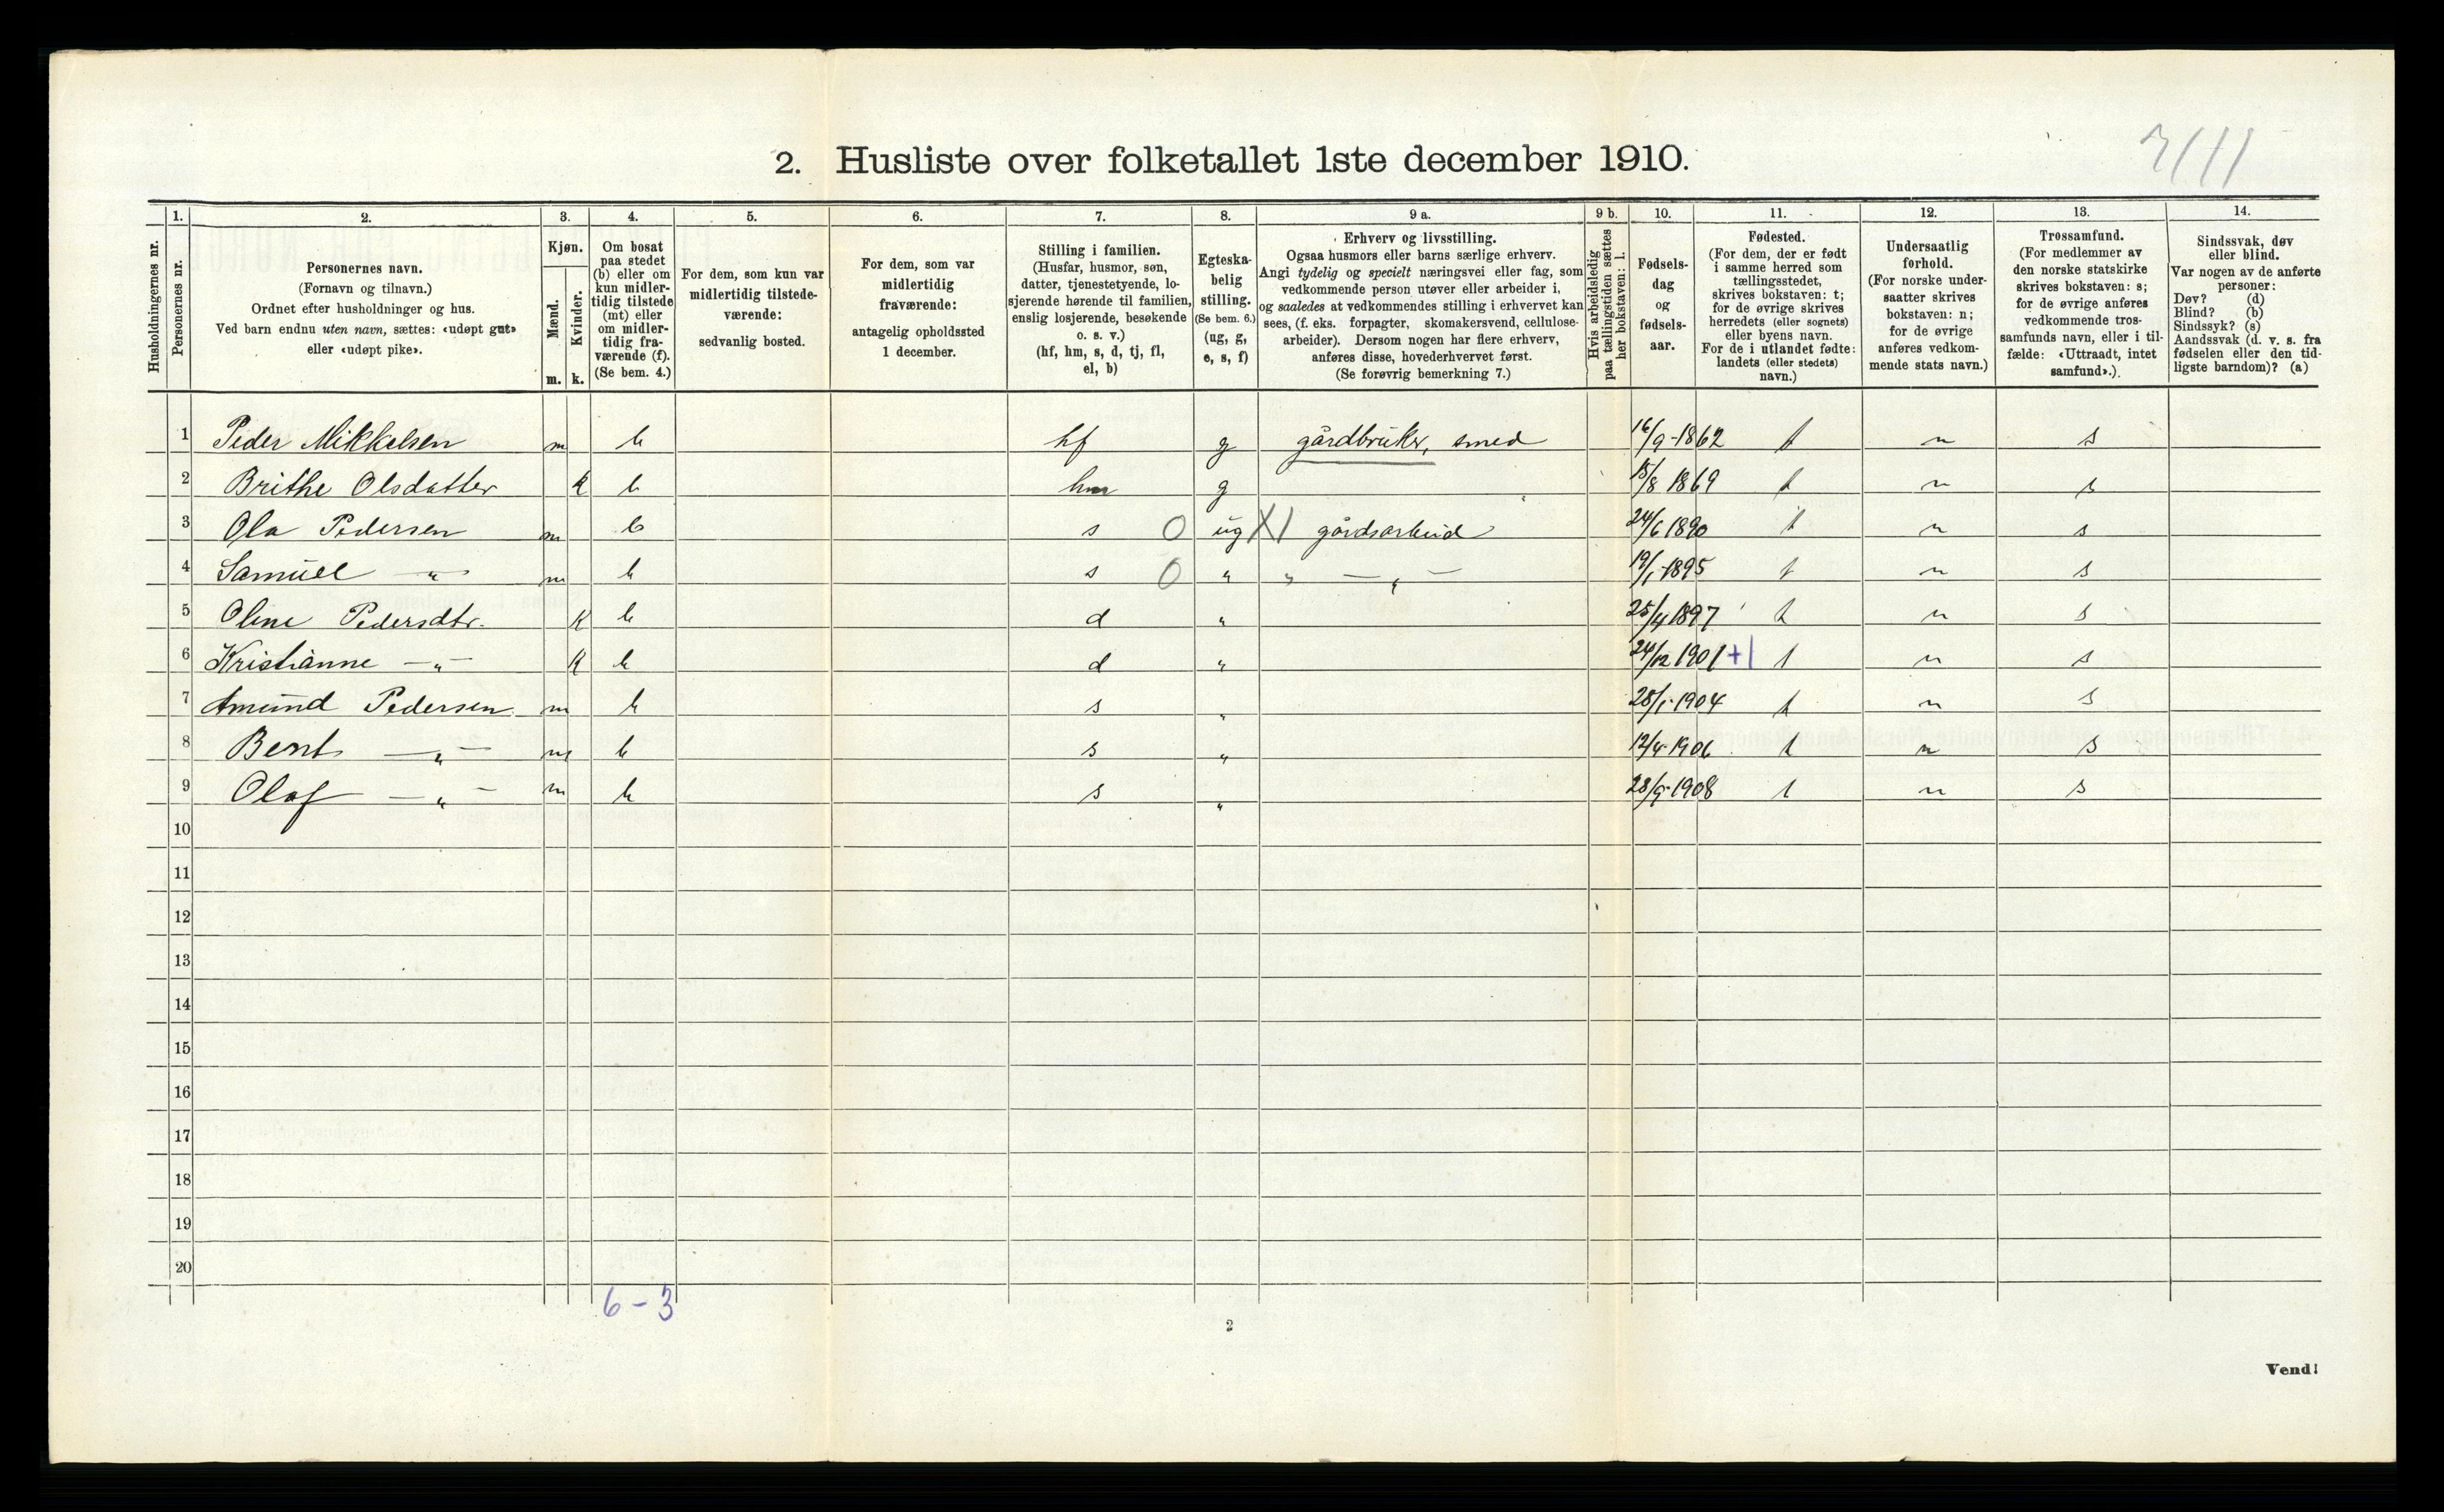 2. Husliste over folketallet 1ste december 1910.
1. 2. 3. 4. 5. 6. 7. 8. 9 a. 9 b. 10. 11. 12. 13. 14.
Husholdningernes nr.
Personernes nr.
Personernes navn.
(Fornavn og tilnavn.)
Ordnet efter husholdninger og hus.
Ved barn endnu uten navn, sættes: «udøpt gut»
eller «udøpt pike».
Kjøn.
Mænd.
Kvinder.
m. k.
Om bosat
paa stedet
(b) eller om
kun midler-
tidig tilstede
(mt) eller
om midler-
tidig fra-
værende (f).
(Se bem. 4.)
For dem, som kun var
midlertidig tilstede-
værende:
sedvanlig bosted.
For dem, som var
midlertidig
fraværende:
antagelig opholdssted
1 december.
Stilling i familien.
(Husfar, husmor, søn,
datter, tjenestetyende, lo-
sjerende hørende til familien,
enslig losjerende, besøkende
o. s. v.)
(hf, hm, s, d, tj, fl,
el, b)
Egteska-
belig
stilling.
(Se bem. 6.)
(ug, g,
e, s, f)
Erhverv og livsstilling.
Ogsaa husmors eller barns særlige erhverv.
Angi tydelig og specielt næringsvei eller fag, som
vedkommende person utøver eller arbeider i,
og saaledes at vedkommendes stilling i erhvervet kan
sees, (f. eks. forpagter, skomakersvend, cellulose-
arbeider). Dersom nogen har flere erhverv,
anføres disse, hovederhvervet først.
(Se forøvrig bemerkning 7.)
Hvis arbeidsledig
paa tællingstiden sættes
her bokstaven: l.
Fødsels-
dag
og
fødsels-
aar.
Fødested.
(For dem, der er født
i samme herred som
tællingsstedet,
skrives bokstaven: t;
for de øvrige skrives
herredets (eller sognets)
eller byens navn.
For de i utlandet fødte:
landets (eller stedets)
navn.)
Undersaatlig
forhold.
(For norske under-
saatter skrives
bokstaven: n;
for de øvrige
anføres vedkom-
mende stats navn.)
Trossamfund.
(For medlemmer av
den norske statskirke
skrives bokstaven: s;
for de øvrige anføres
vedkommende tros-
samfunds navn, eller i til-
fælde: «Uttraadt, intet
samfund».)
Sindssvak, døv
eller blind.
Var nogen av de anførte
personer:
Døv? (d)
Blind? (b)
Sindssyk? (s)
Aandssvak (d. v. s. fra
fødselen eller den tid-
ligste barndom)? (a)
1 Peder Mikkelsen m b hf g gårdbruker, smed 16/9-1862 t n s
2 Brithe Olsdatter k b hm g 15/8 1869 t n s
3 Ola Pedersen m b s 0 ug X1 gårdsarbeid 24/6 1890 t n s
4 Samuel -„- m b s 0 „ „ -„- 19/1-1895 t n s
5 Oline Pedersdtr. k b d „ 25/4 1897 t n s
6 Kristianne -„- k b d „ 24/12 1901 +1 t n s
7 Amund Pedersen m b s „ 28/1-1904 t n s
8 Bent -„- m b s „ 12/4-1906 t n s
9 Olaf -„- m b s „ 28/9-1908 t n s
10
11
12
13
14
15
16
17
18
19
20
6 - 3
2
Vend!